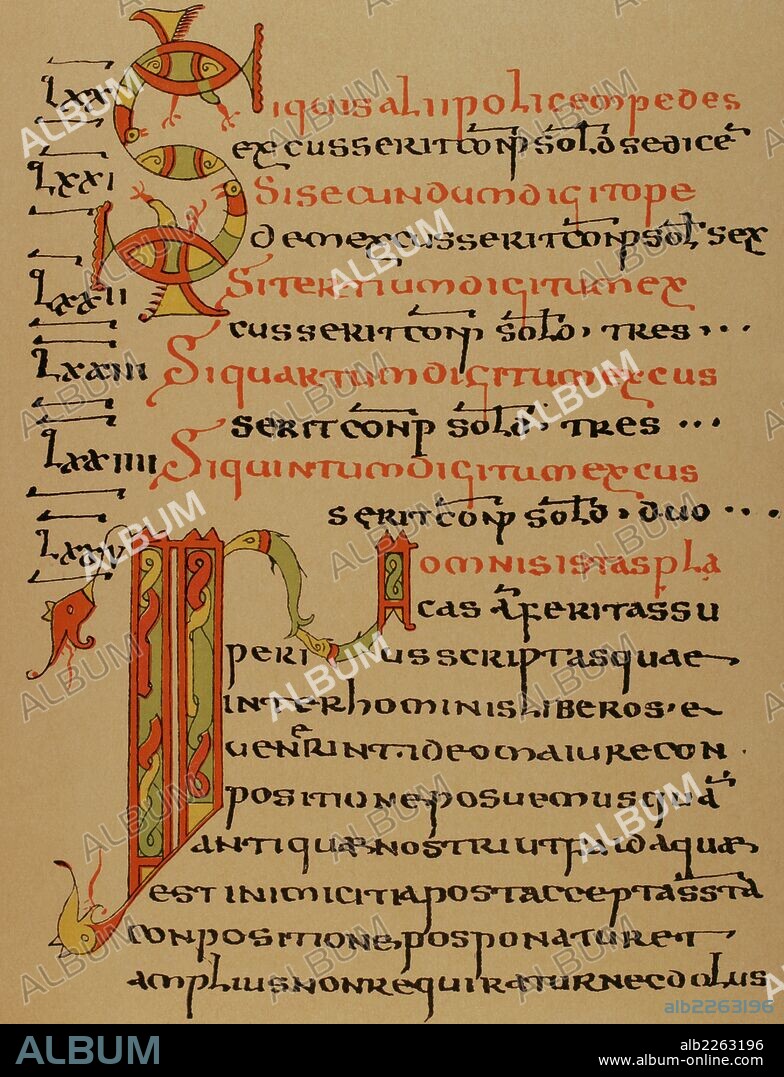 Lxx Siquis aldi policem pedes
excusserit conp sold sedice
Lxxi Si secundum digito pe
dem excusserit conp sol sex
Lxxii Si tertium digitum ex
cusserit conp sold, tres...
Lxxiii Si quartum digitum excus
serit conp sold, tres...
Lxxiiii Si quintum digitum excus
serit conp sold, duo...
Lxxv In omnis istas pla
cas aferitas su
perius scriptas quae
inter hominis liberos, e
uenerint. ideo maiure con
positione posuemus qua
antiquae nostri ut faida quae
est inimicitia post accepta ssta
conpositione, posponatur et
amplius non requiratur nec dolus
ALBUM
alb2263196
ALBUM
alb2263196
www.album-online.com